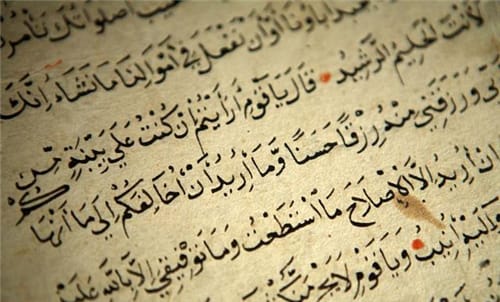 اَصَلَوَاتُكَ تَأْمُرُ
يَعْبُدُ اٰبَاؤُنَا اَوْ اَنْ نَفْعَلَ فِي اَمْوَالِنَا مَا نَشَاءُ اِنَّكَ
لَاَنْتَ الْحَلِيمُ الرَّشِيدُ قَالَ يَا قَوْمِ اَرَاَيْتُمْ اِنْ كُنْتُ عَلٰى بَيِّنَةٍ مِنْ
وَرَزَقَنِي مِنْهُ رِزْقًا حَسَنًا وَمَا اُرِيدُ اَنْ اُخَالِفَكُمْ اِلٰى مَا اَنْهٰيكُمْ
اُرِيدُ اِلَّا الْاِصْلَاحَ مَا اسْتَطَعْتُ وَمَا تَوْفِيقِي اِلَّا بِاللّٰهِ عَلَيْهِ
وَاِلَيْهِ اُنِيبُ وَيَا قَوْمِ لَا يَجْرِمَنَّكُمْ